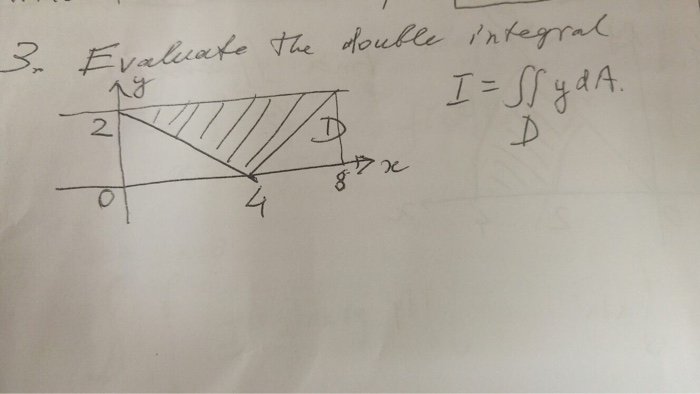 3. Evaluate the double integral
y
I = ∬ y dA.
D
2
D
x
0
4
8